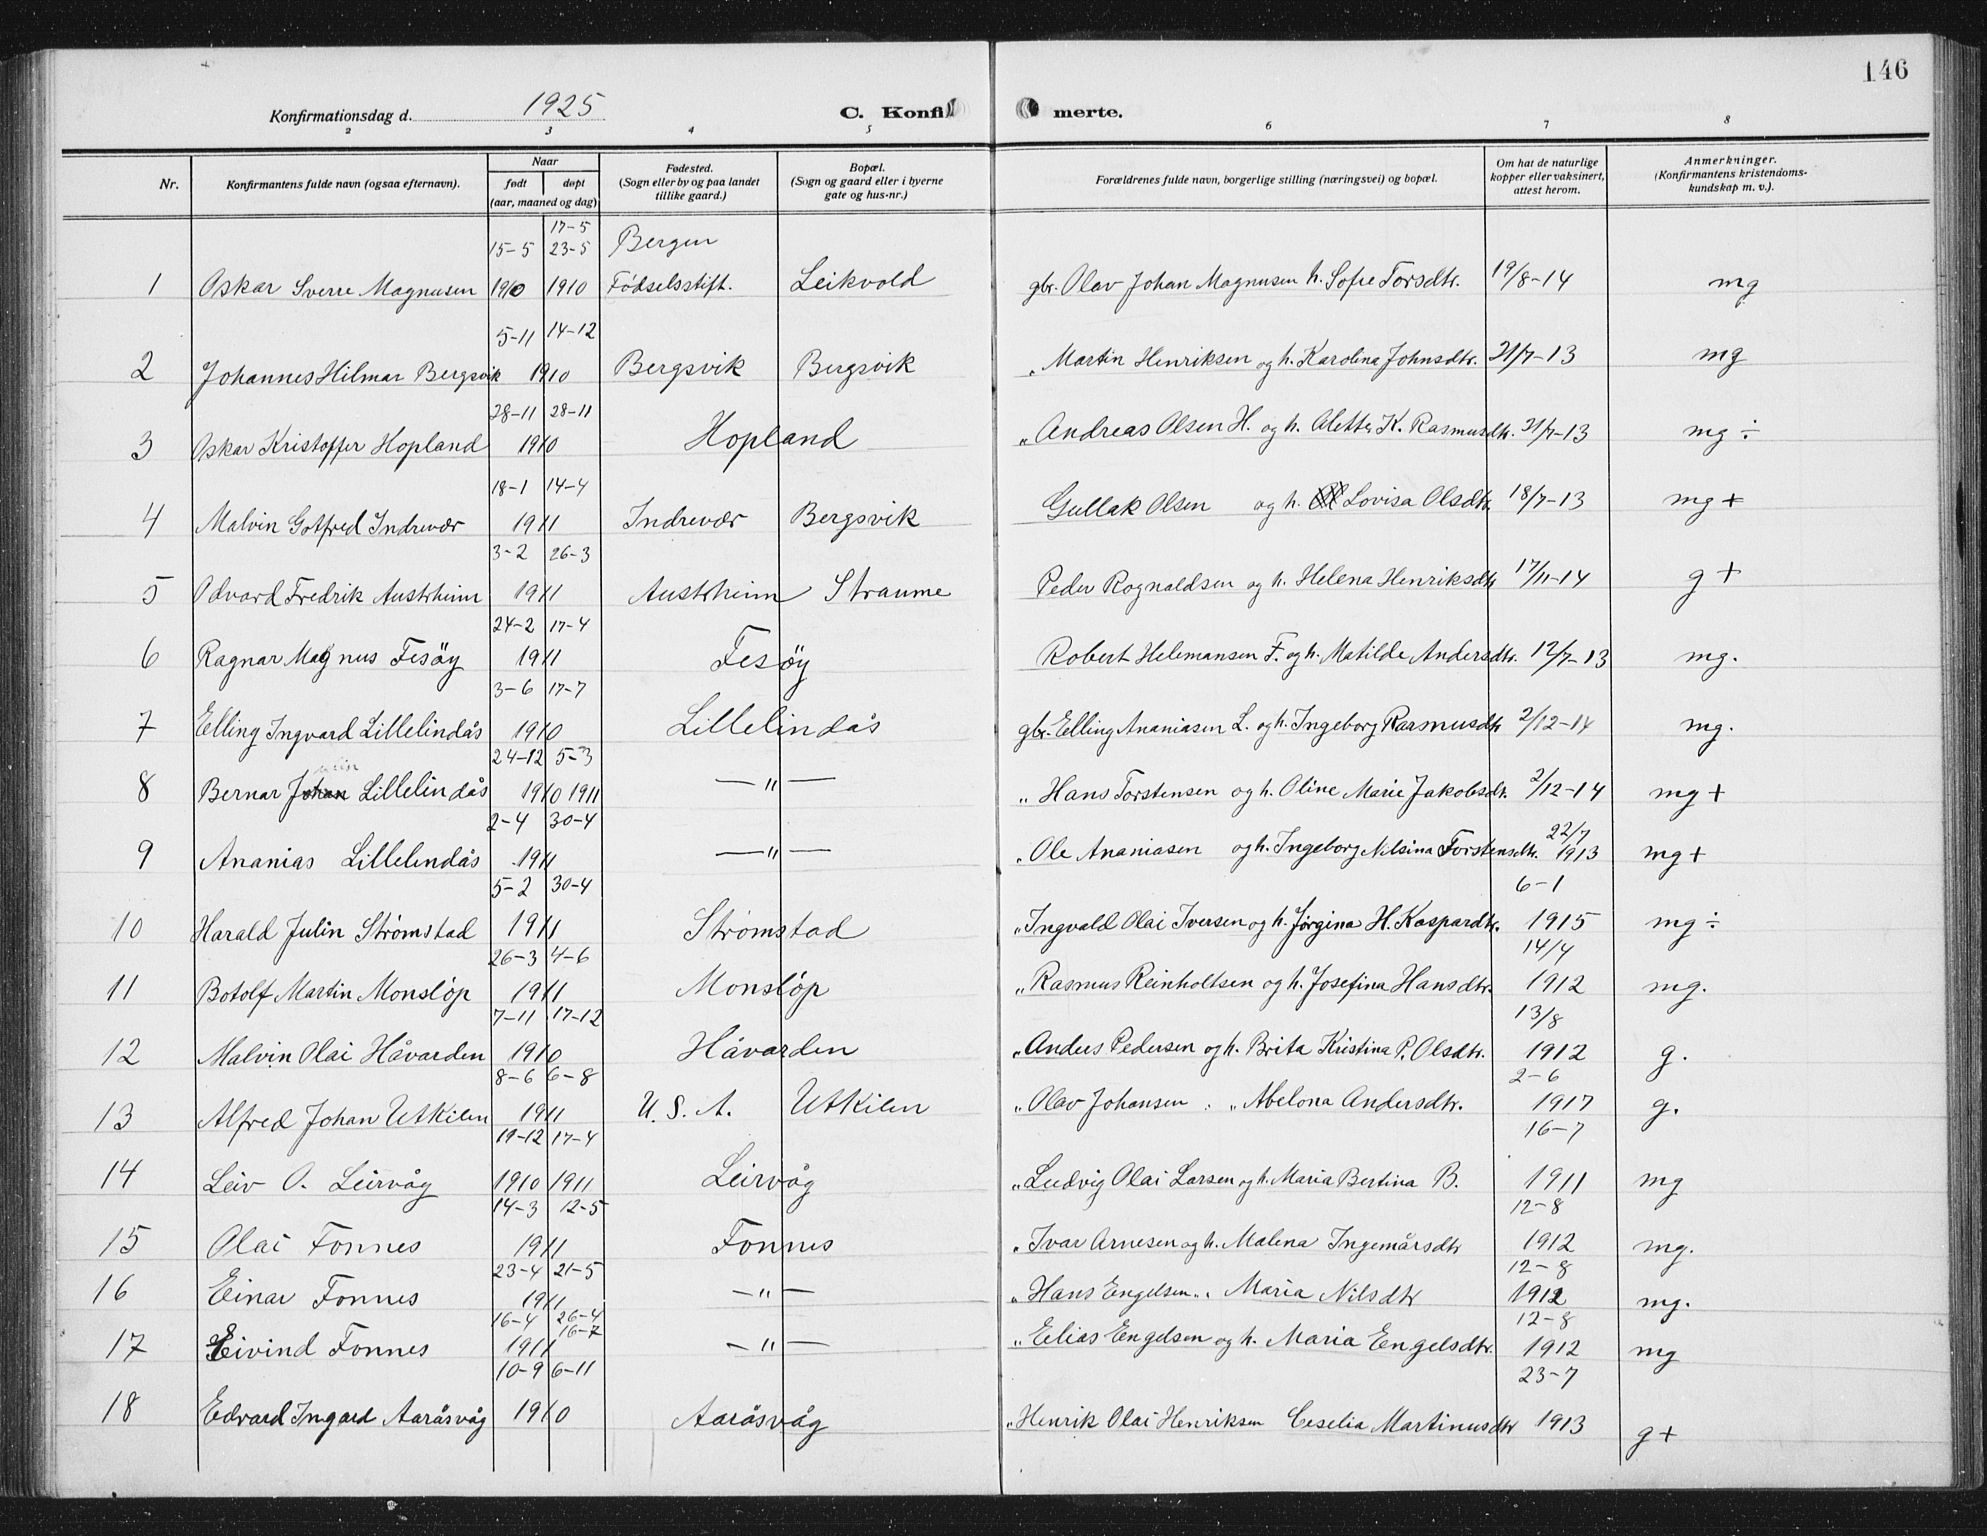 146
Konfirmationsdag d. 1925 C. Konfir merte.
2 3 4 5 6 7 8
Nr. Konfirmantens fulde navn (ogsaa efternavn). Naar født døpt (aar, maaned og dag) Fødested. (Sogn eller by og paa landet tillike gaard.) Bopæl. (Sogn og gaard eller i byerne gate og hus-nr.) Forældrenes fulde navn, borgerlige stilling (næringsvei) og bopæl. Om hat de naturlige kopper eller vaksinert, attest herom. Anmerkninger. (Konfirmantens kristendoms-kundskap m. v.).
17-5
15-5 23-5 Bergen
1 Oskar Sverre Magnusen 1910 1910 Fødselsstift. Leikvold gbr. Olav Johan Magnusen h. Sofie Torsdtr. 19/8-14 mg
5-11 14-12
2 Johannes Hilmar Bergsvik 1910 Bergsvik Bergsvik " Martin Henriksen og h. Karolina Johnsdtr. 21/7-13 mg
28-11 28-11
3 Oskar Kristoffer Hopland 1910 Hopland " Andreas Olsen H. og h. Alette K. Rasmusdtr. 21/7-13 mg ÷
18-1 14-4
4 Malvin Gotfred Indrevær 1911 Indrevær Bergsvik Gullak Olsen og h. Lovisa Olsdtr. 18/7-13 mg +
3-2 26-3
5 Odvard Fredrik Austrheim 1911 Austrheim Straume Peder Rognaldsen og h. Helena Henriksdtr 17/11-14 g +
24-2 17-4
6 Ragnar Magnus Fesöy 1911 Fesöy Robert Helemansen F. og h. Matilde Andersdtr. 12/7-13 mg.
3-6 17-7
7 Elling Ingvard Lillelindås 1910 Lillelindås gbr. Elling Ananiasen L. og h. Ingeborg Rasmusdtr 2/12-14 mg.
24-12 5-3
8 Bernar Johan Lillelindås 1910 1911 — " — " Hans Torstensen og h. Oline Marie Jakobsdtr. 2/12-14 mg +
2-4 30-4 22/7
9 Ananias Lillelindås 1911 — " — " Ole Ananiasen og h. Ingeborg Nilsina Torstensdtr. 1913 mg +
5-2 30-4 6-1
10 Harald Julin Strømstad 1911 Strømstad " Ingvald Olai Iversen og h. Jørgina H. Kaspardtr. 1915 mg ÷
26-3 4-6 14/4
11 Botolf Martin Monsløp 1911 Monsløp " Rasmus Reinholtsen og h. Josefina Hansdtr. 1912 mg.
7-11 17-12 13/8
12 Malvin Olai Håvarden 1910 Håvarden " Anders Pedersen og h. Brita Kristina P. Olsdtr. 1912 g.
8-6 6-8 2-6
13 Alfred Johan Utkilen 1911 U. S. A. Utkilen " Olav Johansen " " Abelona Andersdtr. 1917 g.
19-12 17-4 16-7
14 Leiv O. Leirvåg 1910 1911 Leirvåg " Ludvig Olai Larsen og h. Maria Bertina B. 1911 mg
14-3 12-5 12-8
15 Olai Fonnes 1911 Fonnes " Ivar Arnesen og h. Malena Ingemårsdtr 1912 mg.
23-4 21-5 12-8
16 Einar Fonnes 1911 — " — " Hans Engelsen " " Maria Nilsdtr 1912 mg.
16-4 26-4 16-7 12-8
17 Eivind Fonnes 1911 — " — " Elias Engelsen og h. Maria Engelsdtr. 1912 mg
10-9 6-11 23-7
18 Edvard Ingard Aaråsvåg 1910 Aaråsvåg " Henrik Olai Henriksen Ceselia Martinusdtr 1913 g +